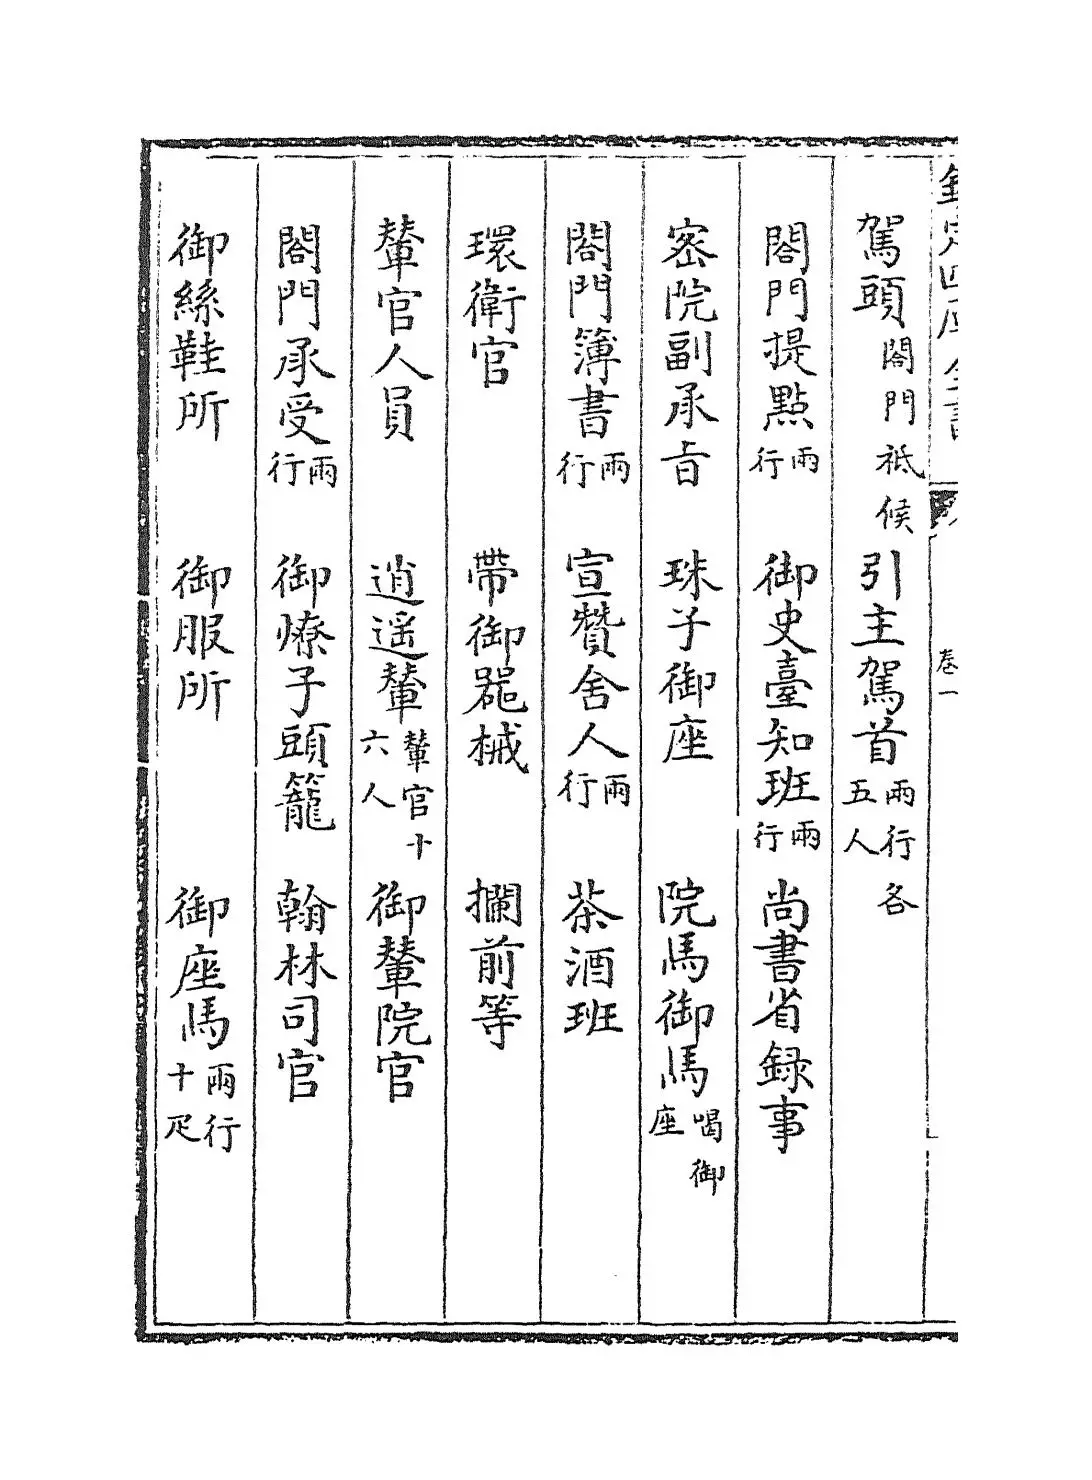 欽定四庫全書
卷一
駕頭 閤門祗候 引主駕首 兩行各五人
閤門提點 兩行 御史臺知班 兩行 尚書省録事
密院副承㫖 珠子御座 院馬御馬 喝御座
閤門簿書 兩行 宣贊舍人 兩行 茶酒班
環衛官 帶御器械 攔前等
輦官人員 逍遥輦 輦官十六人 御輦院官
閤門承受 兩行 御燎子頭籠 翰林司官
御絲鞋所 御服所 御座馬 兩行十疋